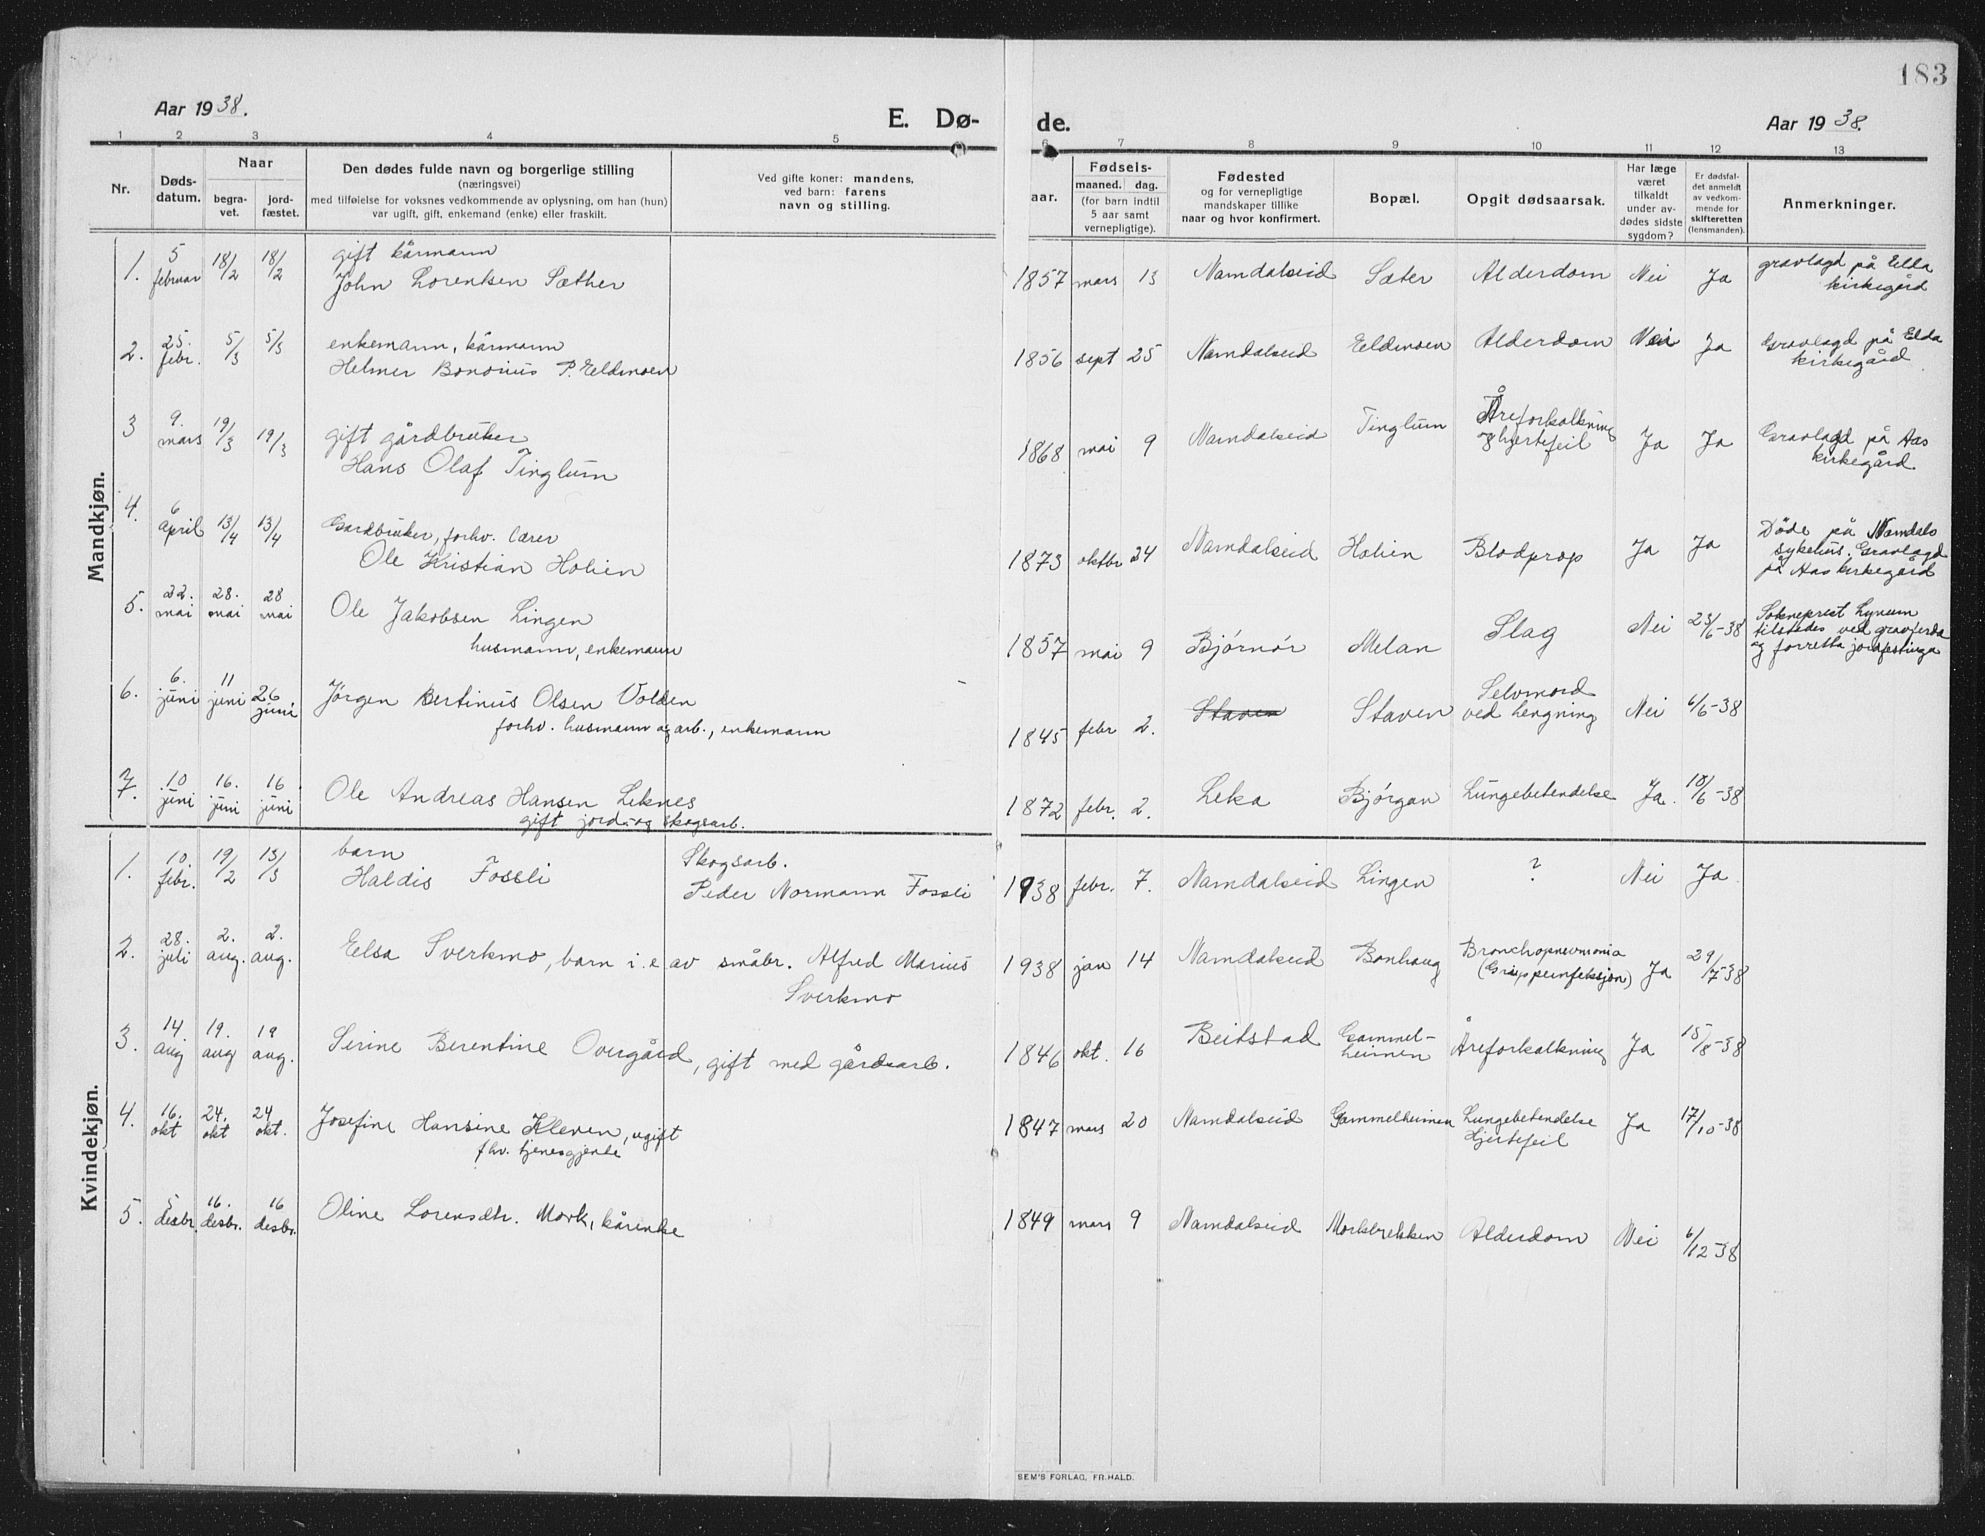 183
Aar 1938.
E. Dø-
de.
Aar 1938.
1 2 3 4 5 6 7 8 9 10 11 12 13
Nr.
Døds-
datum.
Naar
begra-
vet.
jord-
fæstet.
Den dødes fulde navn og borgerlige stilling
(næringsvei)
med tilføielse for voksnes vedkommende av oplysning, om han (hun)
var ugift, gift, enkemand (enke) eller fraskilt.
Ved gifte koner: mandens,
ved barn: farens
navn og stilling.
aar.
Fødsels-
maaned. dag.
(for barn indtil
5 aar samt
vernepligtige).
Fødested
og for vernepligtige
mandskaper tillike
naar og hvor konfirmert.
Bopæl.
Opgit dødsaarsak.
Har læge
været
tilkaldt
under av-
dødes sidste
sygdom?
Er dødsfal-
det anmeldt
av vedkom-
mende for
skifteretten
(lensmanden).
Anmerkninger.
Mandkjøn.
1. 5 februar 18/2 18/2 gift kårmann
John Lorentsen Sæther
1857 mars 13 Namdalseid Sæter Alderdom Nei Ja gravlagd på Elda
kirkegård
2. 25. febr. 5/3 5/3 enkemann, kårmann
Helmer Bononius P. Eldmoen
1856 sept 25 Namdalseid Eeldmoen Alderdom Nei Ja Gravlagd på Elda
kirkegård
3 9. mars 19/3 19/3 gift gårdbruker
Hans Olaf Tinglum
1868 mai 9 Namdalseid Tinglum Åreforkalkning
og hjertefeil Ja Ja Gravlagd på Aas
kirkegård.
4. 6 april 13/4 13/4 Gardbruker, forhv. lærer
Ole Kristian Holien
1873 oktbr 24 Namdalseid Holien Blodprop Ja Ja Døde på Namdals
sykehus. Gravlagd
på Aas kirkegård
5. 22. mai 28. mai 28 mai Ole Jakobsen Lingen
husmann, enkemann
1857 mai 9 Bjørnør Melan Slag Nei 23/6-38 Sokneprest Lynum
tilstedes ved gravferda
og forretta jordfestinga
6. 6. juni 11 juni 26 juni Jørgen Bertinus Olsen Volden
forhv. husmann og arb., enkemann
1845 febr 2. Staven Staven Selvmord
ved hengning Nei 6/6-38
7. 10 juni 16. juni 16 juni Ole Andreas Hansen Leknes
gift jord- og skogsarb.
1872 febr. 2. Leka Bjørgan Lungebetendelse Ja. 10/6-38
Kvindekjøn.
1. 10 febr. 19/2 13/3 barn
Haldis Fossli
Skogsarb.
Peder Normann Fossli
1938 febr. 7. Namdalseid Lingen ? Nei Ja
2. 28. juli 2. aug. 2. aug. Eelsa Sverkmo, barn i. e av småbr. Alfred Marius
Sverkmo
1938 jan 14 Namdalseid Bonhaug Bronchopneumonia
(Grippeinfeksjon) Ja 29/7-38
3. 14 aug 19. aug 19 aug. Serine Berentine Overgård, gift med gårdsarb.
1846 okt. 16 Beitstad Gammel-
heimen Åreforkalkning Ja 15/8-38
4. 16. okt 24. okt 24 okt. Josefine Hansine Kleven, ugift
fhv. tjenesgjente
1847 mars 20 Namdalseid Gammelheimen Lungebetendelse
Hjertefeil Ja 17/10-38
5. 5 desbr. 16. desbr. 16 desbr. Oline Lorensdtr. Mork, kårenke
1849 mars 9 Namdalseid Morkbrekken Alderdom Nei 6/12-38
SEM'S FORLAG, FR.HALD.